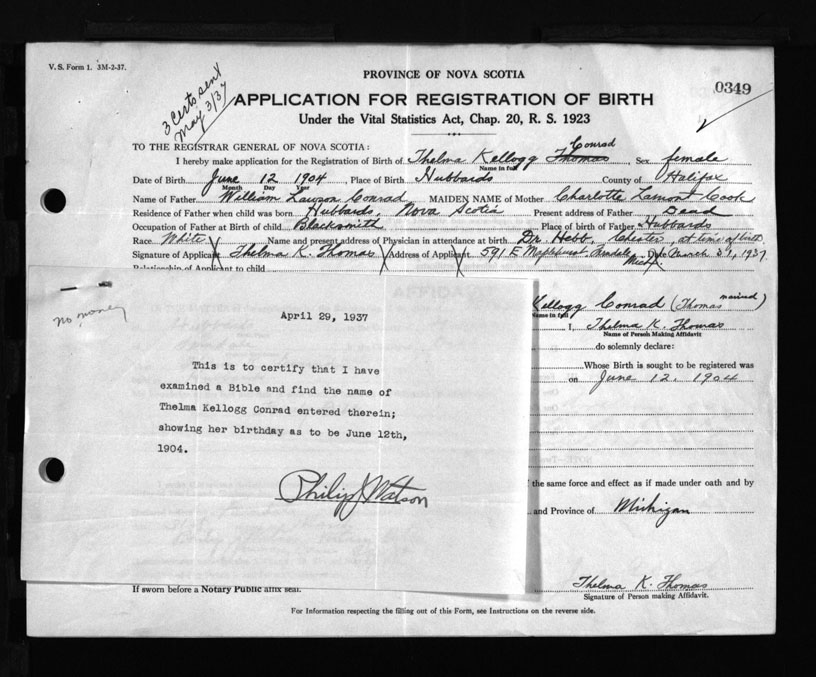 V. S. Form 1. 3M-2-37.
3 Certs sent
May 3/37
PROVINCE OF NOVA SCOTIA
0349
APPLICATION FOR REGISTRATION OF BIRTH
Under the Vital Statistics Act, Chap. 20, R. S. 1923
TO THE REGISTRAR GENERAL OF NOVA SCOTIA:
Conrad
I hereby make application for the Registration of Birth of Thelma Kellogg Thomas Sex female
Name in full
Date of Birth June 12 1904, Place of Birth Hubbards County of Halifax
Month Day Year
Name of Father William Lawson Conrad MAIDEN NAME of Mother Charlotte Lamont Cook
Residence of Father when child was born Hubbards, Nova Scotia Present address of Father Dead
Occupation of Father at Birth of child Blacksmith Place of birth of Father Hubbards
Race White Name and present address of Physician in attendance at birth Dr. Hebb, Chester, at time of birth
Signature of Applicant Thelma K. Thomas Address of Applicant 591 E Ferndale Mich. Date March 31, 1937.
Relationship of Applicant to child
no money
Kellogg Conrad (Thomas married)
Name in full
I, Thelma K. Thomas
Name of Person Making Affidavit
do solemnly declare:
Whose Birth is sought to be registered was
on June 12, 1904
April 29, 1937
This is to certify that I have
examined a Bible and find the name of
Thelma Kellogg Conrad entered therein;
showing her birthday as to be June 12th,
1904.
Philip J Watson
the same force and effect as if made under oath and by
and Province of Michigan
Thelma K. Thomas
If sworn before a Notary Public affix seal.
Signature of Person making Affidavit.
For Information respecting the filling out of this Form, see Instructions on the reverse side.